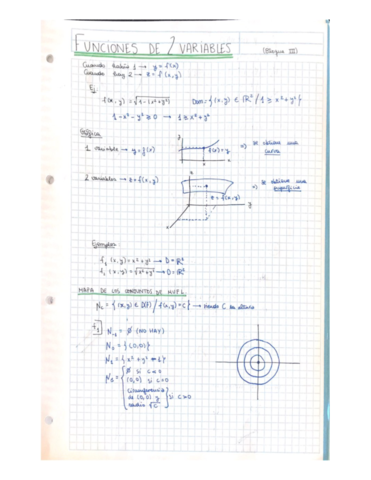 FUNCIONES DE 2 VARIABLES (Bloque III)
Cuando había 1 → y = f(x)
Cuando hay 2 → z = f(x,y)
Ej.
f(x,y) = √(1-(x²+y²)) Dom: {(x,y) ∈ ℝ² / 1 ≥ x²+y²}
1-x²-y² ≥ 0 → 1 ≥ x²+y²
Gráfica
1 variable → y = f(x)
f(x)=y
x
Se obtiene una
curva
2 variables → z = f(x,y)
z = f(x,y)
Se obtiene una
superficie
Ejemplos
f₁(x,y) = x²+y² → D = ℝ²
f₂(x,y) = √x²+y² → D = ℝ²
MAPA DE LOS CONJUNTOS DE NIVEL
N_c = {(x,y) ∈ D(f) / f(x,y) = C} → siendo C la altura
f₁
N₋₁ = ∅ (NO HAY)
N₀ = {(0,0)}
N₁ = {x²+y² = 1}
∅ si C<0
(0,0) si C=0
circunferencia
de (0,0) y
radio √C
si C>0